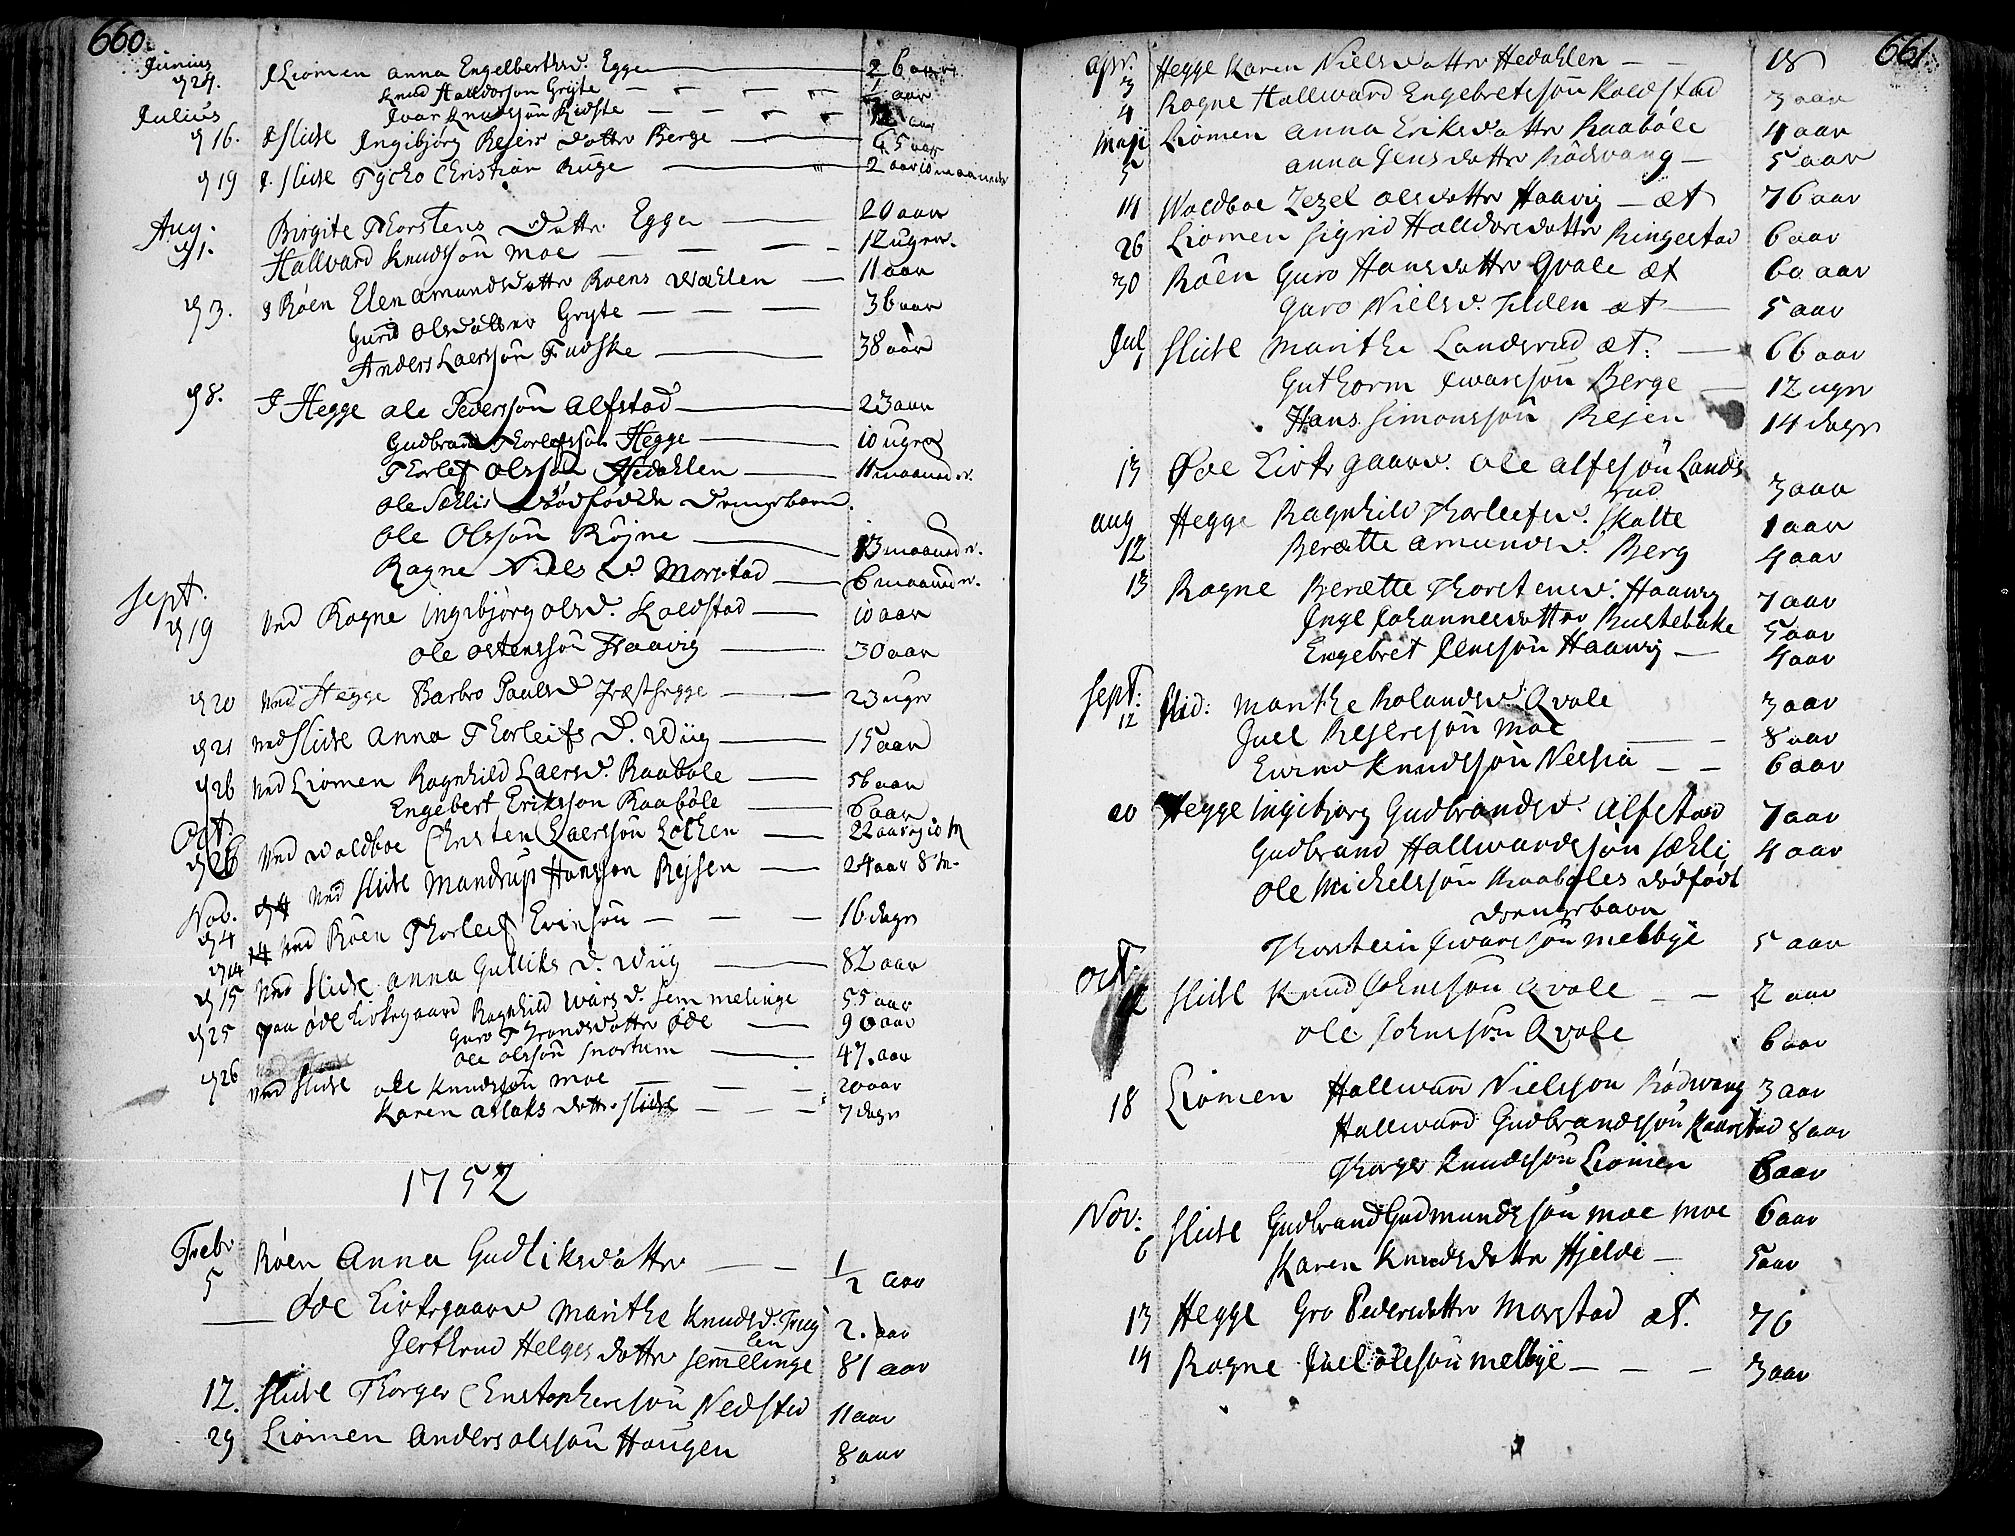 660
Junius
d 24. J Liomen Anna Engelbertsd. Egge 26 aar
Knud Halldorsøn Gryte 1/2 aar
Julius
Ivar Knudssøn Kidste aar
d 16. J Slidre Ingibjørg Reiersdotter Berge 65 aar
d 19 J. Slidre Tycho Christian Ruge 2 aar 10 maaneder
Aug.
d 1. Birgite Thorstens Dotter Egge 20 aar
Hallvard Knudssøn Moe 12 uger.
d 3. J Røen Elen Amundsdotter Roens Dahlen 11 aar
Gurid Olsdotter Gryte 36 aar
Anders Laerssøn Fudske 38 aar
d 8. J Hegge Ole Pederssøn Alfstad 23 aar
Gudbrand Thorlefssøn Hegge 10 uger
Thorlef Olssøn Hedahlen 11 maaneder.
Ole Sælis Dødfødde Drengebarn.
Ole Olssøn Røjne 13 maaneder.
Ragne Niels D. Morstad 6 maaneder.
Sept.
d 19 Ved Rogne Ingibjørg Olsd. Koldstad 10 aar
Ole Ostenssøn Haavig 30 aar
d 20 Ved Hegge Barbro Paulsd Præsthegge 23 uger
d 21 Ved Slidre Anna Thorleifs D. Wiig 15 aar
d 26 Ved Liomen Ragnhild Laersd. Raabøle 56 aar
Engebert Erikssøn Raabøle 6 aar
Oct.
d 26 Ved Woldboe Christen Laerssøn Lothen 22 aar og 10 M
Nov.
d 4 Ved Slidre Mandrup Hanssøn Rejsen 24 aar 8 M.
d 14 Ved Røen Thorleif Evinsøn 16 dager
d 15 Ved Slidre Anna Gulliks D. Wiig 82 aar
d 25 paa Øde Kirkegaard Ragnhild Iwars D. Semmelinge 55 aar
Guro Trondsdotter Øde 90 aar
Ole Olssøn Snortum 47. aar
d 26 Ved Slidre Ole Knudssøn Moe 20 aar
Karen Aslaks dotter Slidre 7 dager
1752
Febr.
5 Røen Anna Gudliksdotter 1/2 aar
Øde Kirkegaard Marithe Knudsd. Frug
len 2. aar
Jerthrud Helges dotter Semmelinge 81 aar
12. Slidre Thorger Christophersøn Nedstad 11 aar
29 Liomen Anders Olssøn Haugen 8 aar
661.
Apr.
3 Hegge Karen Nielsdotter Hedahlen 18
4 Rogne Hallward Engebretssøn Koldstad 3 aar
Maji
5 Liomen Anna Eriksdotter Raabøle 4 aar
Anna Jensdotter Rødwang 5 aar
14 Woldboe Zezel Olsdotter Haavig æt 76 aar
26 Liomen Sigrid Halldorsdotter Ringestad 6 aar
30 Røen Guro Hansdotter Qvale æt 60 aar
Guro Nielsd. Tilden æt 5 aar
Jul
1 Slidre Marithe Landsrud æt: 66 aar
Guthorm Iwarssøn Berge 12 uger
Hans Simonssøn Rejen 14 dager
13 Øde Kirkegaard. Ole Alfssøn Lands
rud 3 aar
Aug
12 Hegge Ragnhild Thorleifsd. Skatte 1 aar
Berætte Amundsd. Berg 4 aar
13 Rogne Berætte Thorstensd: Haawig 7 aar
Inge Johannesdotter Rustebake 5 aar
Engebret Jenssøn Haawig 4 aar
Sept:
12 Slid: Marithe Rolandsd. Qvale 3 aar
Juel Rejerssøn Moe 8 aar
Knudssøn 6 aar
20 Hegge Ingibjørg Gudbrandsd. Alfstad 7 aar
Gudbrand Hallwardssøn Sæhli 4 aar
Ole Michelssøn Raaboles dødfødt
drengebarn
Thorstein Iwarssøn Melbye 5 aar
Oct.
12 Slidre Knud Johnssøn Qvale 2 aar
Ole Johnssøn Qvale 6 aar
18 Liomen Hallward Nielssøn Rødwang 3 aar
Hallward Gudbrandssøn Kaarstad 8 aar
Thorger Knudssøn Liomen 6 aar
Nov:
6 Slidre Gudbrand Gudmundssøn Moe Moe 6 aar
Karen Knudsdotter Hjelde 5 aar
13 Hegge Gro Pedersdotter Morstad æt. 76
14 Rogne Juel Olessøn Melbye 3 aar